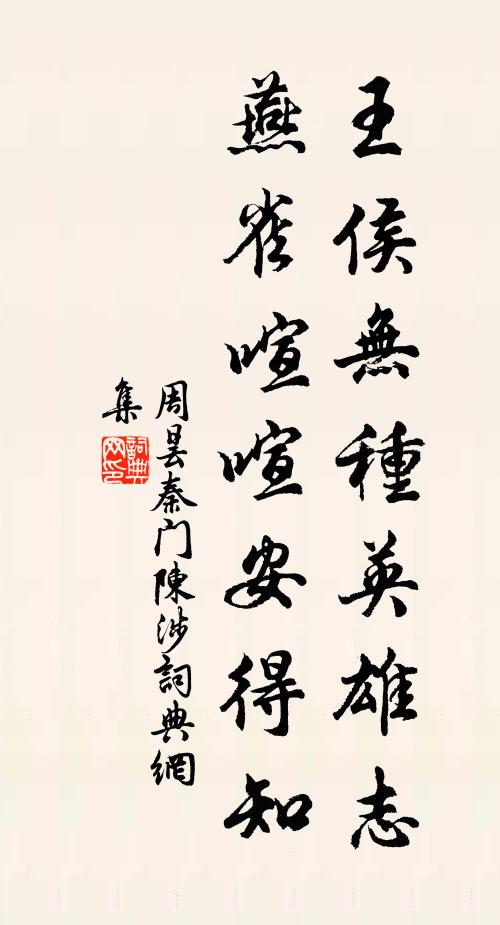 王侯無種英雄志
燕雀喧喧安得知
周曇秦门陳涉詞典網
集
詞典
网印